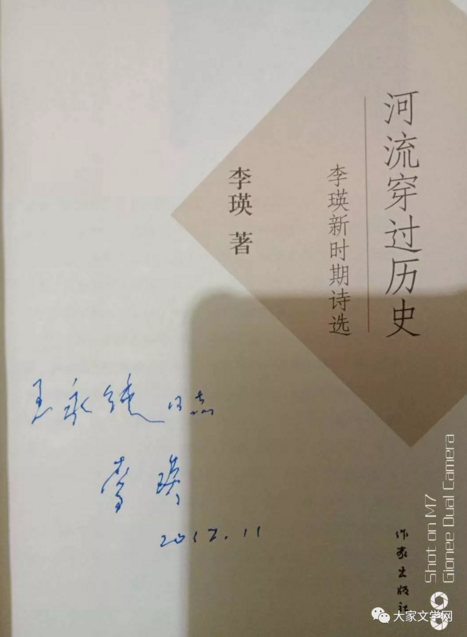 河流穿过历史
李瑛新时期诗选
李瑛 著
王永健同志
李瑛
2017.11
作家出版社
Shot on M7
Gionee Dual Camera
大家文学网